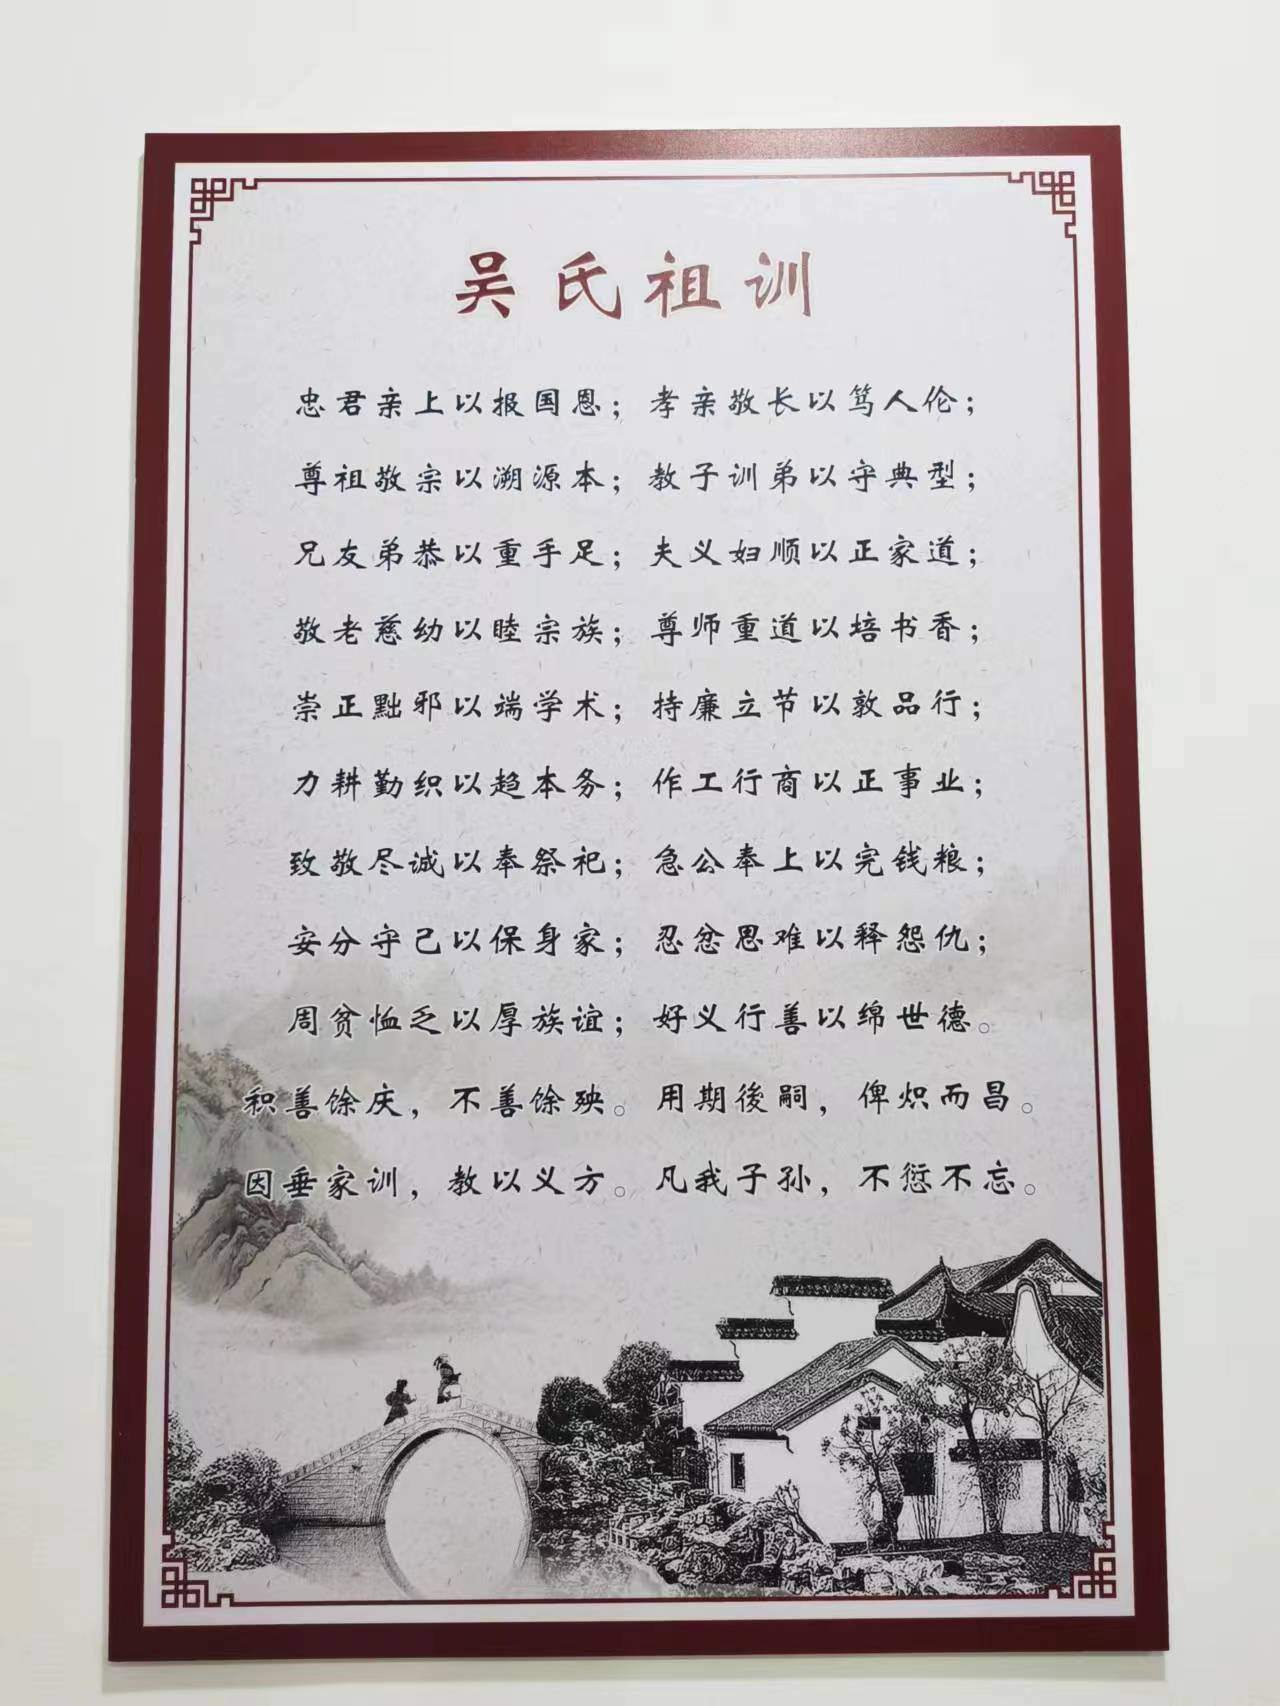 吴氏祖训
忠君亲上以报国恩；孝亲敬长以笃人伦；
尊祖敬宗以溯源本；教子训弟以守典型；
兄友弟恭以重手足；夫义妇顺以正家道；
敬老慈幼以睦宗族；尊师重道以培书香；
崇正黜邪以端学术；持廉立节以敦品行；
力耕勤织以趋本务；作工行商以正事业；
致敬尽诚以奉祭祀；急公奉上以完钱粮；
安分守己以保身家；忍忿思难以释怨仇；
周贫恤乏以厚族谊；好义行善以绵世德。
积善馀庆，不善馀殃。用期後嗣，俾炽而昌。
因垂家训，教以义方。凡我子孙，不愆不忘。